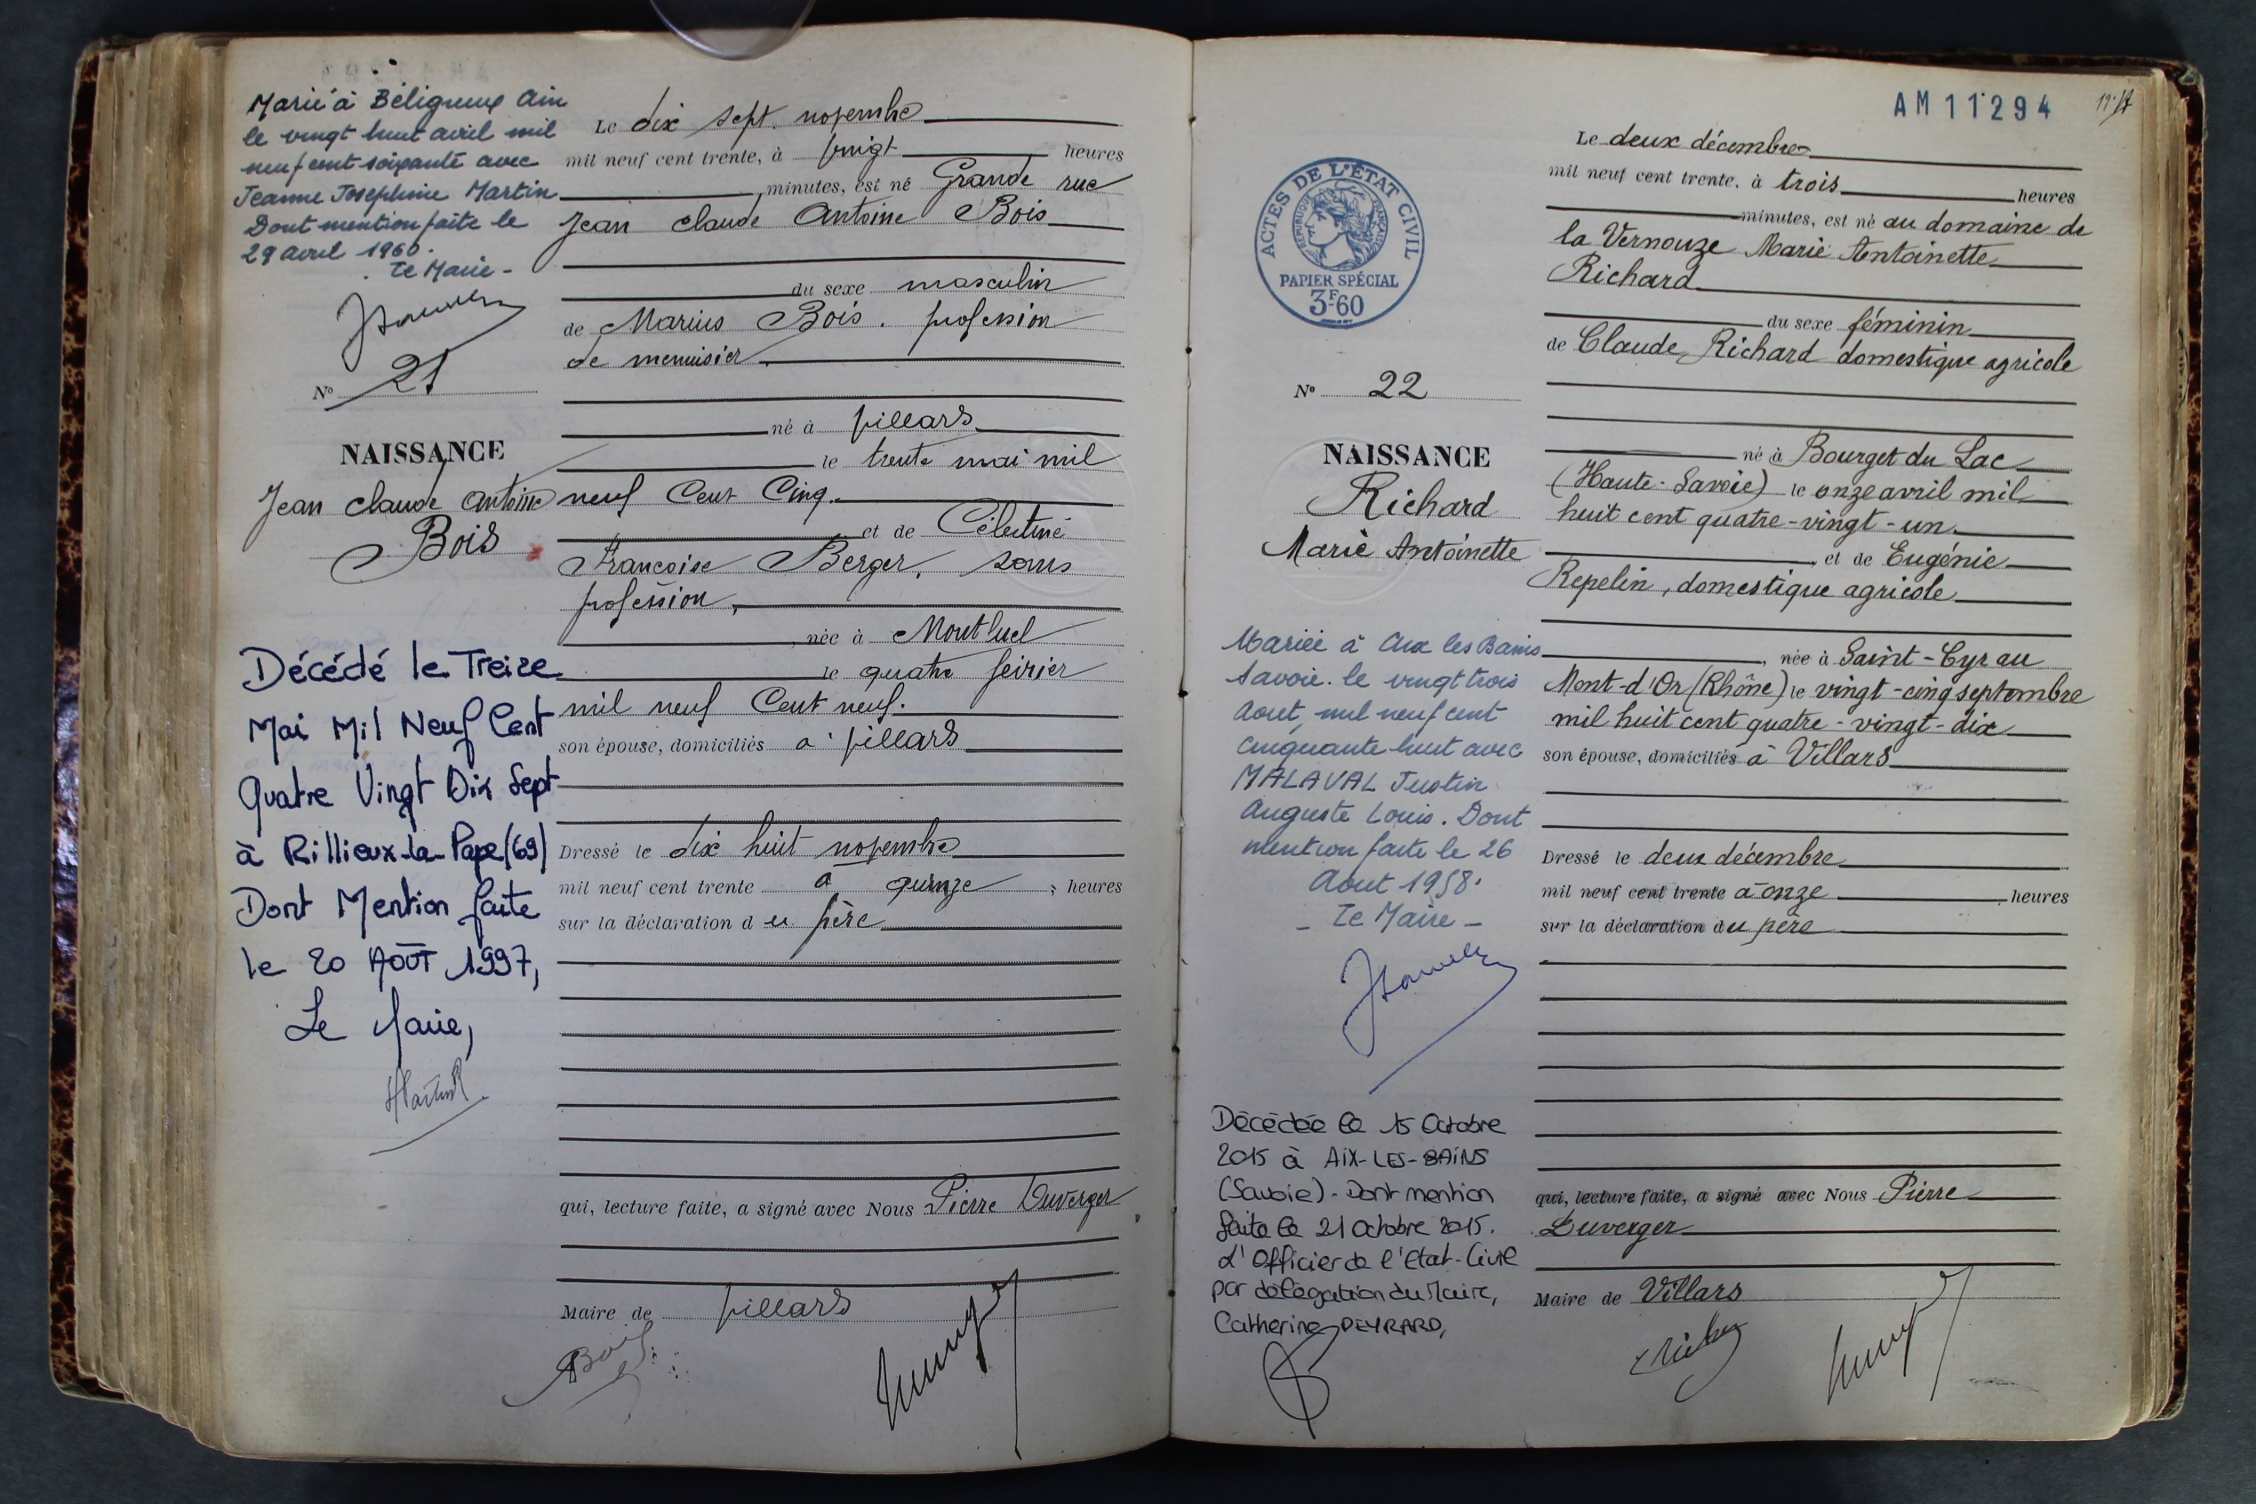 Marié à Béligneux Ain
le vingt huit avril mil
neuf cent soixante avec
Jeanne Josephine Martin
Dont mention faite le
29 avril 1960.
Le Maire -
N° 21
NAISSANCE
Jean claude Antoine
Bois
Décédé le Treize
Mai Mil Neuf Cent
Quatre Vingt Dix Sept
à Rillieux-la-Pape (69)
Dont Mention faite
le 20 AOÛT 1997,
Le Maire,
Le dix sept novembre
mil neuf cent trente, à vingt heures
minutes, est né Grande rue
Jean claude Antoine Bois
du sexe masculin
de Marius Bois. profession
de menuisier
né à Villars
le trente mai mil
neuf Cent Cinq.
et de Célestine
Francoise Berger, sans
profession,
née à Montluel
le quatre février
mil neuf Cent neuf.
son épouse, domiciliés à Villars
Dressé le dix huit novembre
mil neuf cent trente à quinze, heures
sur la déclaration du père
qui, lecture faite, a signé avec Nous Pierre Duverger
Maire de Villars
Bois
AM 11294
ACTES DE L'ÉTAT CIVIL
RÉPUBLIQUE FRANÇAISE
PAPIER SPÉCIAL
3F60
N° 22
NAISSANCE
Richard
Marie Antoinette
Mariée à Aix les Bains
Savoie. le vingt trois
Aout, mil neuf cent
cinquante huit avec
MALAVAL Justin
Auguste Louis. Dont
mention faite le 26
Aout 1958.
- Le Maire -
Décédée le 15 Octobre
2015 à AIX-LES-BAINS
(Savoie) - Dont mention
faite le 21 Octobre 2015.
L'Officier de l'Etat-Civil
par délégation du Maire,
Catherine PEYRARD,
Le deux décembre
mil neuf cent trente, à trois heures
minutes, est né au domaine de
la Vernouze Marie Antoinette
Richard
du sexe féminin
de Claude Richard domestique agricole
né à Bourget du Lac
(Haute-Savoie) le onze avril mil
huit cent quatre-vingt-un.
et de Eugénie
Repelin, domestique agricole
, née à Saint-Cyr au
Mont-d'Or (Rhône) le vingt-cinq septembre
mil huit cent quatre-vingt-dix
son épouse, domiciliés à Villars
Dressé le deux décembre
mil neuf cent trente à onze heures
sur la déclaration du père
qui, lecture faite, a signé avec Nous Pierre
Duverger
Maire de Villars